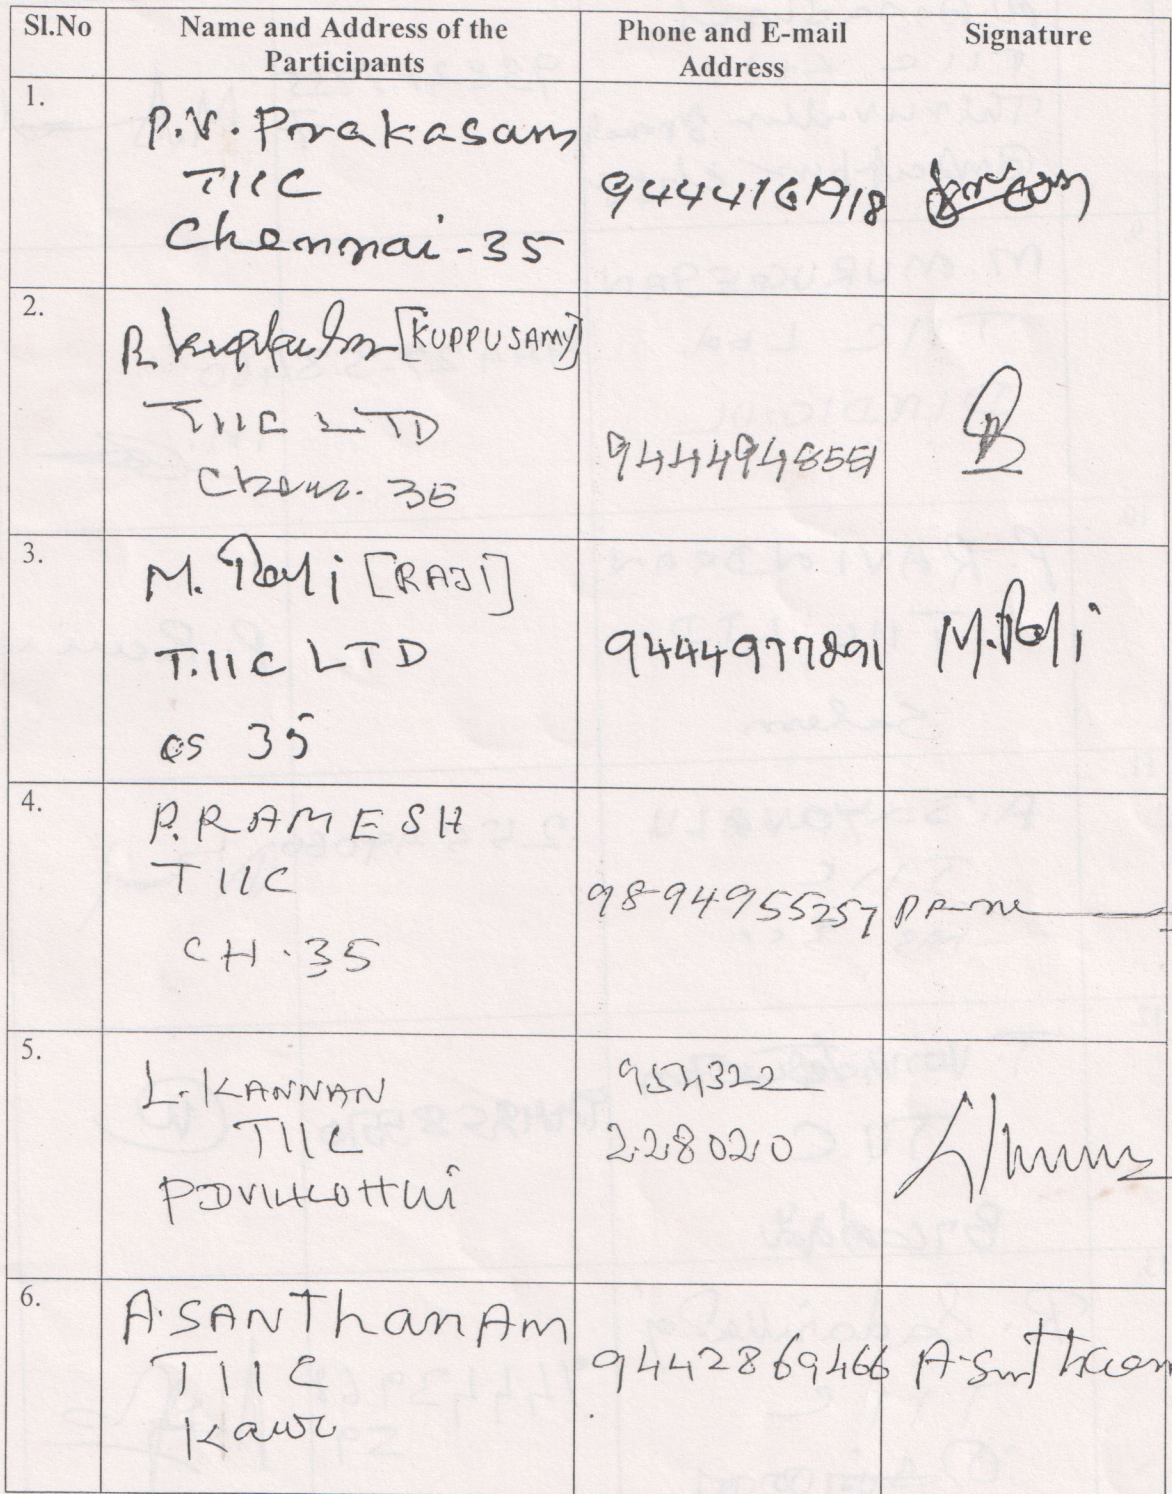 Sl.No Name and Address of the Participants Phone and E-mail Address Signature
1.
P.V. Prakasam
TIIC
Chennai-35
9444161918
2.
R. [KUPPUSAMY]
TIIC LTD
35
9444948551
3.
M. Raji [RAJI]
T.IIC LTD
35
9444977891
M. Raji
4.
P. RAMESH
TIIC
CH.35
98-94955257
5.
L. KANNAN
TIIC
954322
228020
6.
A. SANThanAm
TIIC
9442869466
A. Santhanam